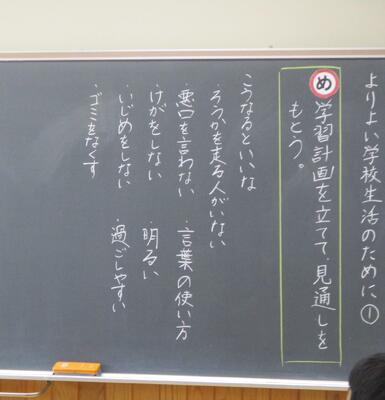 よりよい学校生活のために①
め 学習計画を立てて、見通しを
もとう。
こうなるといいな
・ろうかを走る人がいない
・悪口を言わない ・言葉の使い方
・けがをしない ・明るい
・いじめをしない ・過ごしやすい
・ゴミをなくす